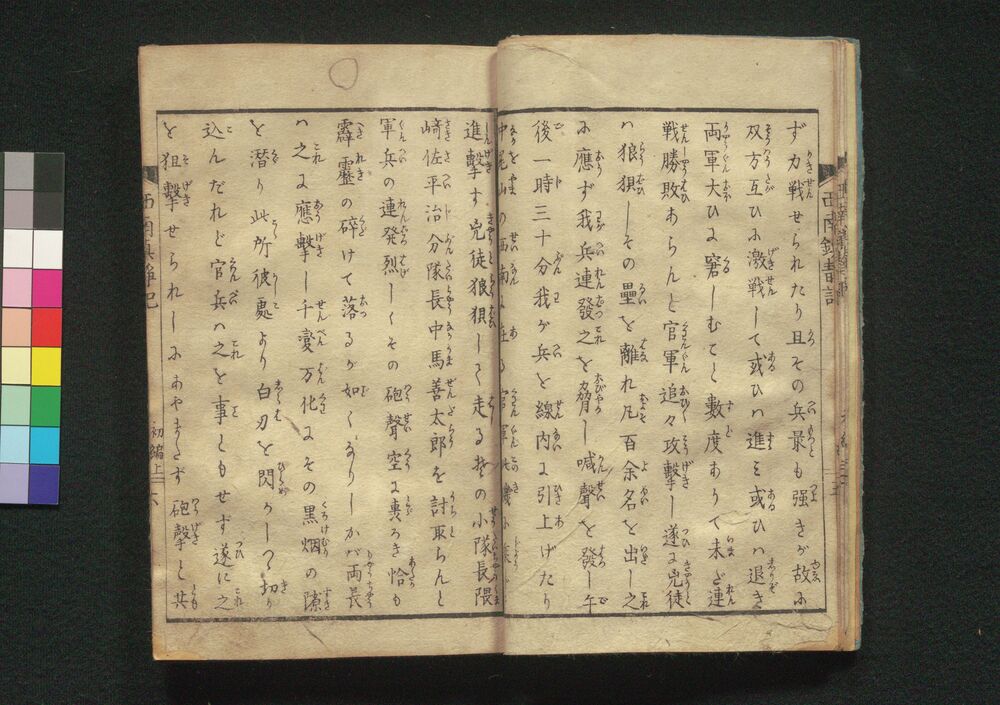 ず力戦せられたり且その兵最も强きが故に
双方互ひに激戦して或ひハ進ミ或ひハ退き
両軍大ひに窘しむこと數度ありて未だ連
戦勝敗あらんと官軍追々攻撃し遂に兇徒
ハ狼狽しその壘を離れ凡百余名を出し之
に應ず我兵連發之を脅し喊聲を發し午
後一時三十分我が兵を線内に引上げたり
中尾山の西南に在る官軍
進撃す兇徒狼狽して走る其の小隊長隈
﨑佐平治分隊長中馬善太郎を討取らんと
軍兵の連発烈しくその砲聲空に轟ろき恰も
霹靂の碎けて落るが如くなりしかバ両長
ハ之に應撃し千変万化にその黒烟の隙
を潜り此所彼處より白刃を閃かして切り
込んだれど官兵ハ之を事ともせず遂に之
を狙撃せられしにあやまたず砲撃と共
初編上
六